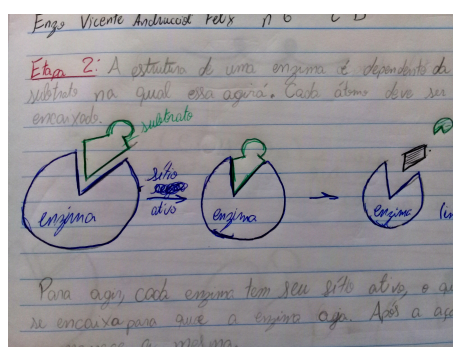 Enzo Vicente Andracod Felix nº 6 2ºB
Etapa 2: A estrutura de uma enzima é dependente da
substrato na qual essa agirá. Cada átomo deve ser
encaixado.
substrato
sítio
ativo
enzima
enzima
enzima
Para agir, cada enzima tem seu sítio ativo, o qu
se encaixa para que a enzima aga. Após a açã
a mesma.